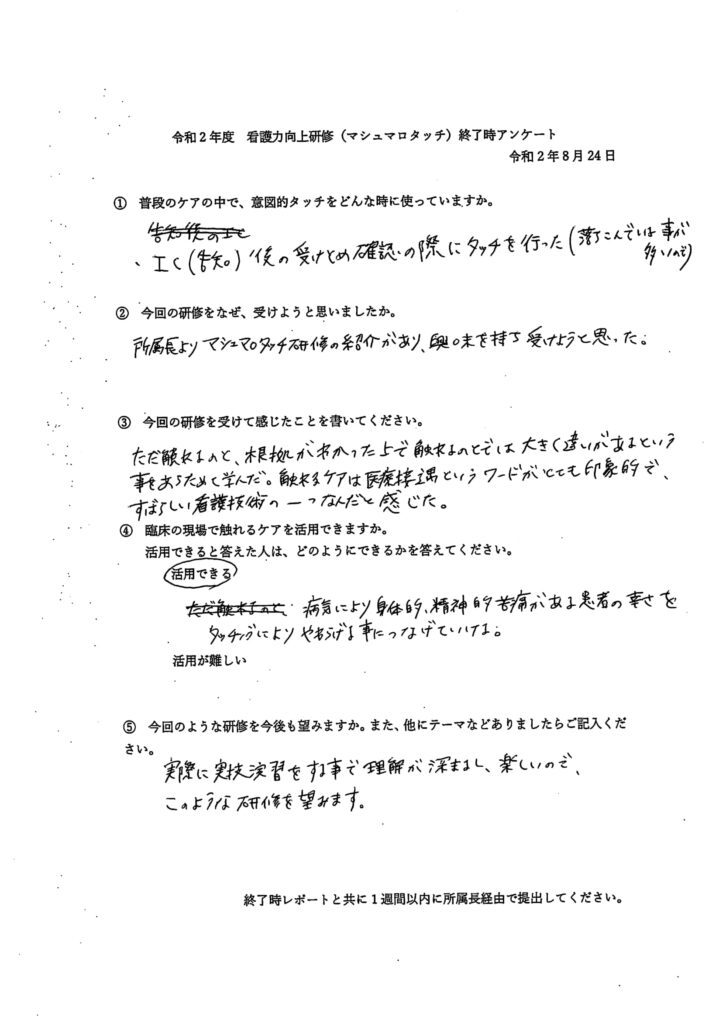 令和２年度　看護力向上研修（マシュマロタッチ）終了時アンケート
令和２年８月24日
①　普段のケアの中で、意図的タッチをどんな時に使っていますか。
告知後のIC
、IC(告知)後の受けとめ確認の際にタッチを行った(落ちこんでいる事が
多いので)
②　今回の研修をなぜ、受けようと思いましたか。
所属長よりマシュマロタッチ研修の紹介があり、興味を持ち受けようと思った。
③　今回の研修を受けて感じたことを書いてください。
ただ触れるのと、根拠がわかった上で触れるのとでは大きく違いがあるという
事をあらためて学んだ。触れるケアは医療接遇というワードがとても印象的で、
すばらしい看護技術の一つなんだと感じた。
④　臨床の現場で触れるケアを活用できますか。
活用できると答えた人は、どのようにできるかを答えてください。
活用できる
ただ触れるのと、病気により身体的、精神的苦痛がある患者の辛さを
タッチングによりやわらげる事につなげていける。
活用が難しい
⑤　今回のような研修を今後も望みますか。また、他にテーマなどありましたらご記入くだ
さい。
実際に実技演習をする事で理解が深まるし、楽しいので、
このような研修を望みます。
終了時レポートと共に１週間以内に所属長経由で提出してください。